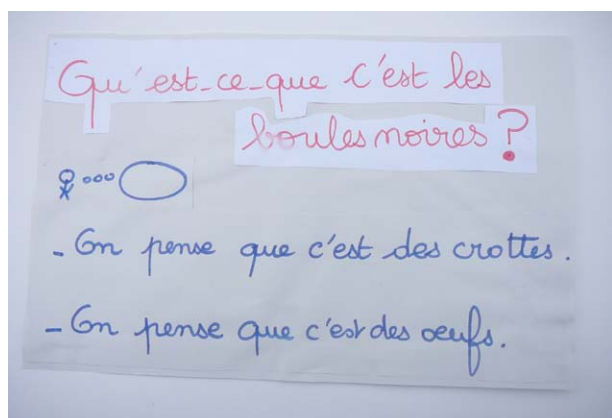 Qu'est-ce-que c'est les
boules noires ?
- On pense que c'est des crottes.
- On pense que c'est des oeufs.